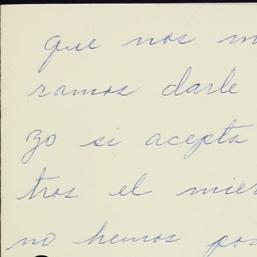 que nos m
ramos darle
zo si acepta
tros el mier
no hemos pos